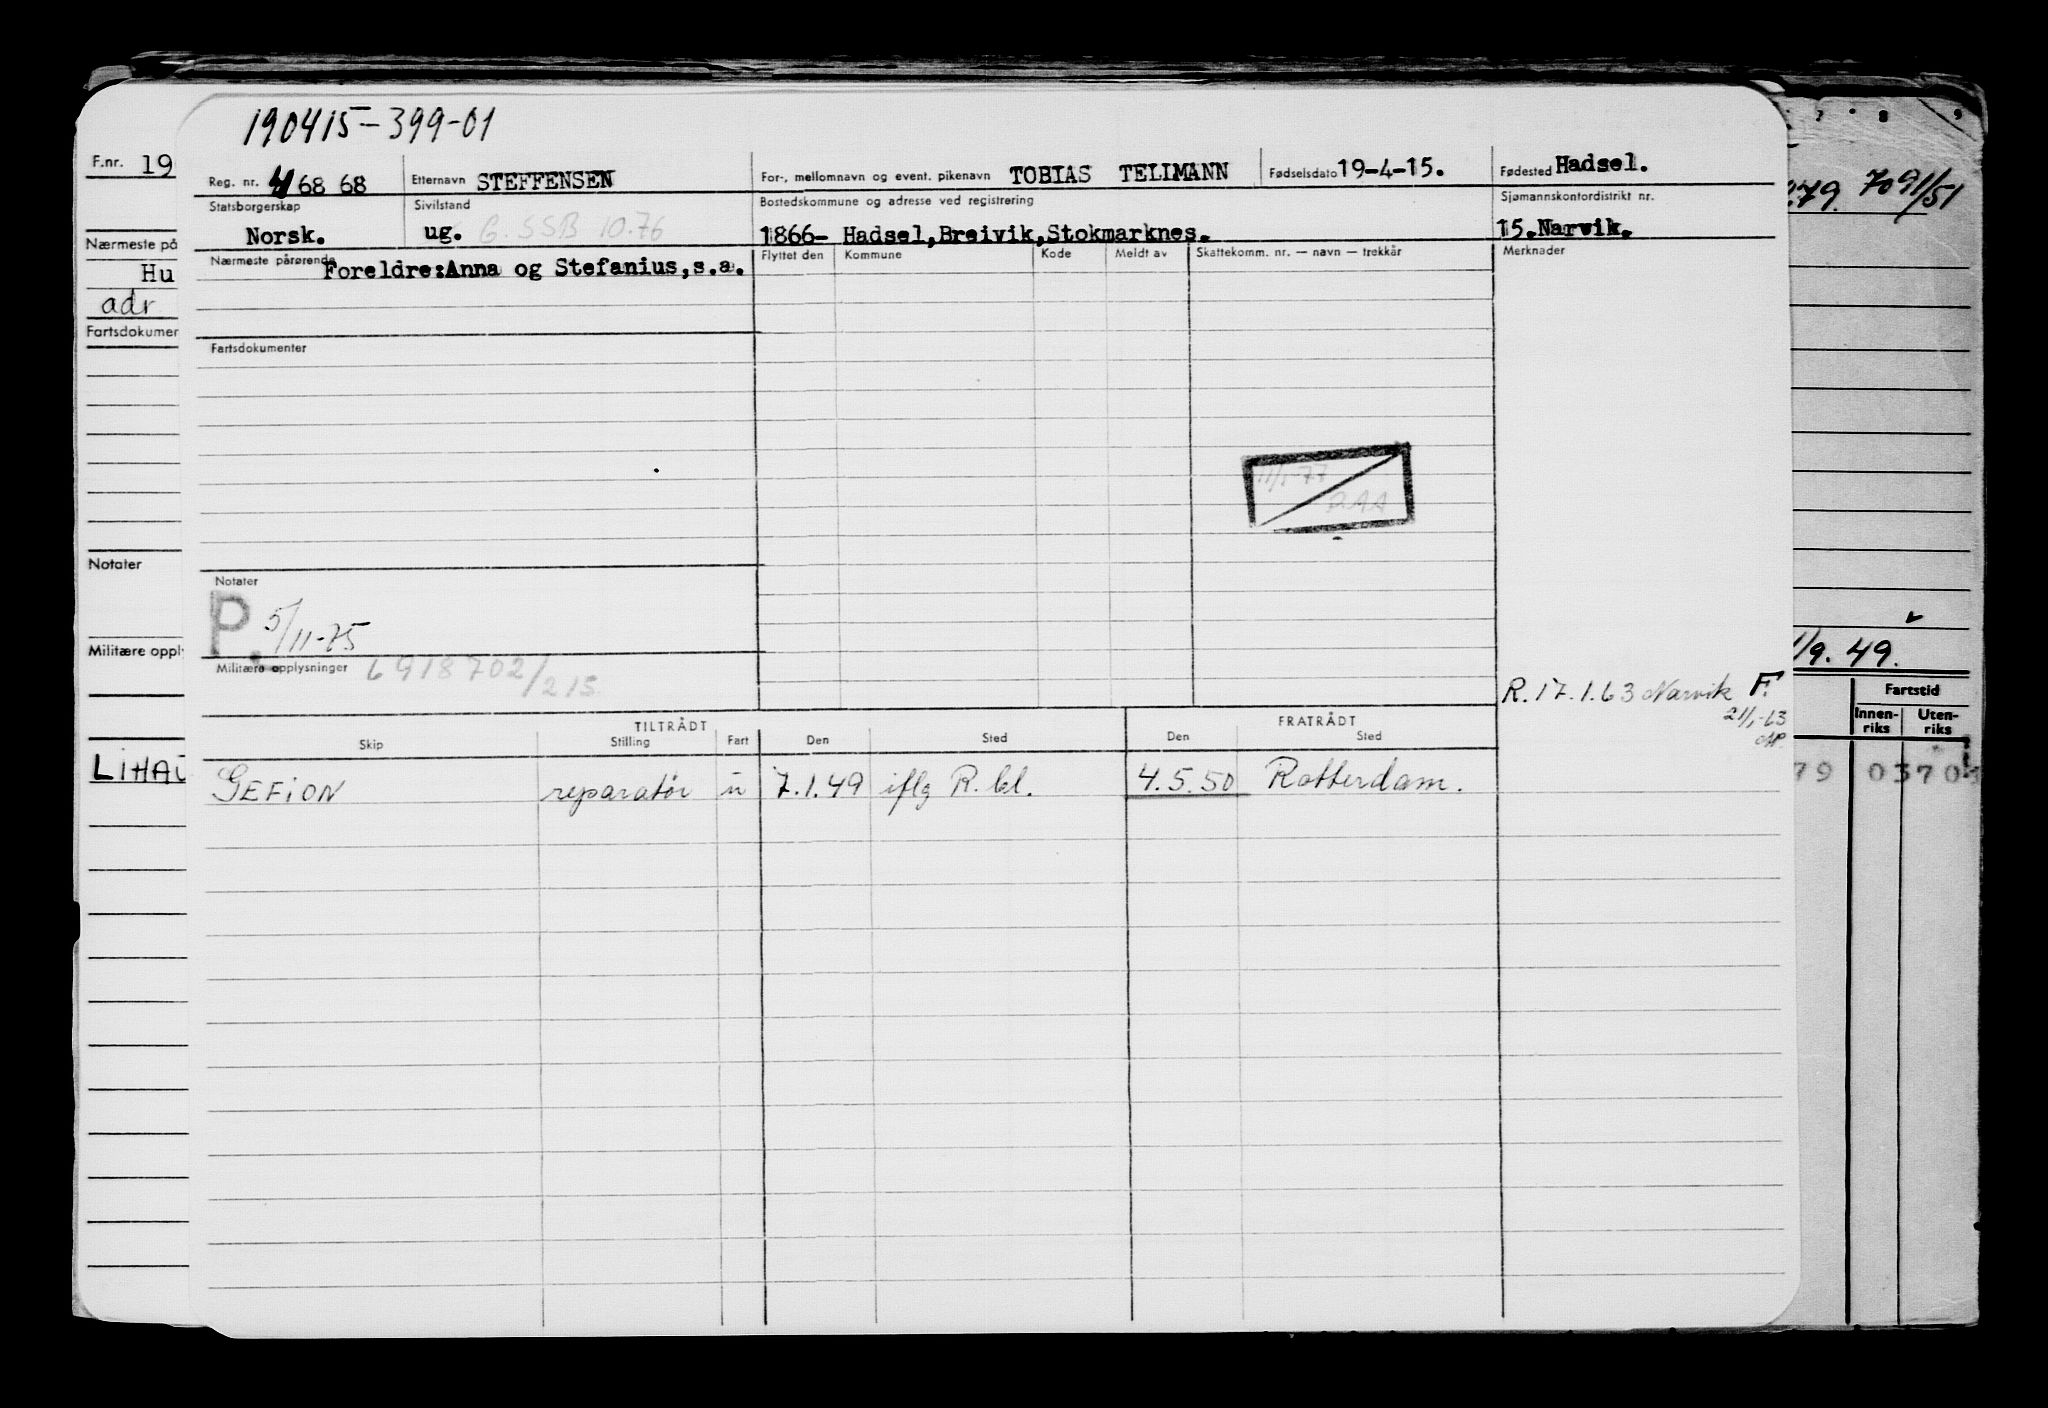 190415-399-01
Reg. nr. 468 68 Etternavn STEFFENSEN For-, mellomnavn og event. pikenavn TOBIAS TELIMANN Fødselsdato 19-4-15. Fødested Hadsel.
Statsborgerskap Sivilstand Bostedskommune og adresse ved registrering Sjømannskontordistrikt nr.
Norsk. ug. G. SSB 10.76 1866- Hadsel,Breivik,Stokmarknes. 15.Narvik.
Nærmeste pårørende Foreldre:Anna og Stefanius,s.a. Flyttet den Kommune Kode Meldt av Skattekomm. nr. — navn — trekkår Merknader
Fartsdokumenter
11/1-77
RAA
Notater
P. 5/11-75
Militære opplysninger 6918702/215
R. 17.1.63 Narvik F.
21/1-63
TILTRÅDT FRATRÅDT
Skip Stilling Fart Den Sted Den Sted
GEFION reparatør u 7.1.49 iflg R. bl. 4.5.50 Rotterdam.
F.nr. 19
Nærmeste på
Hu
adr
Fartsdokumen
Notater
Militære oppl
LIHAU
7 8 9
279. 7091/51
1/9. 49.
Fartstid
Innen-riks Uten-riks
79 0370